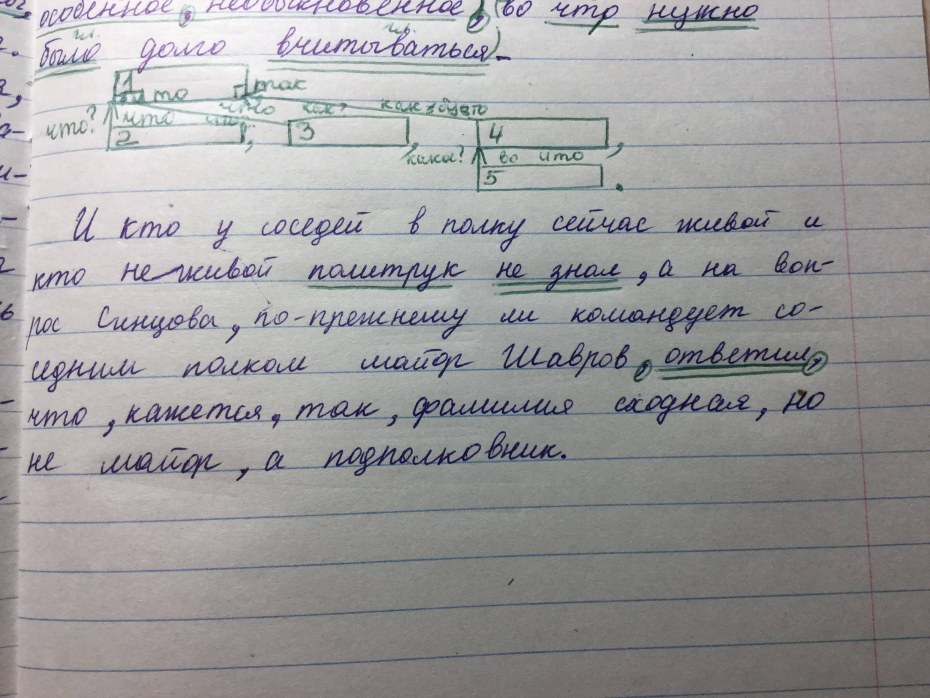 особенное, необыкновенное, (во что нужно
гл. гл.
было долго вчитываться).
1 так
то
что как? как будто
что?
2, 3, 4,
какое? во что
5.
И кто у соседей в полку сейчас живой и
кто не живой политрук не знал, а на воп-
рос Синцова, по-прежнему ли командует со-
седним полком майор Шавров, ответил,
что, кажется, так, фамилия сходная, но
не майор, а подполковник.